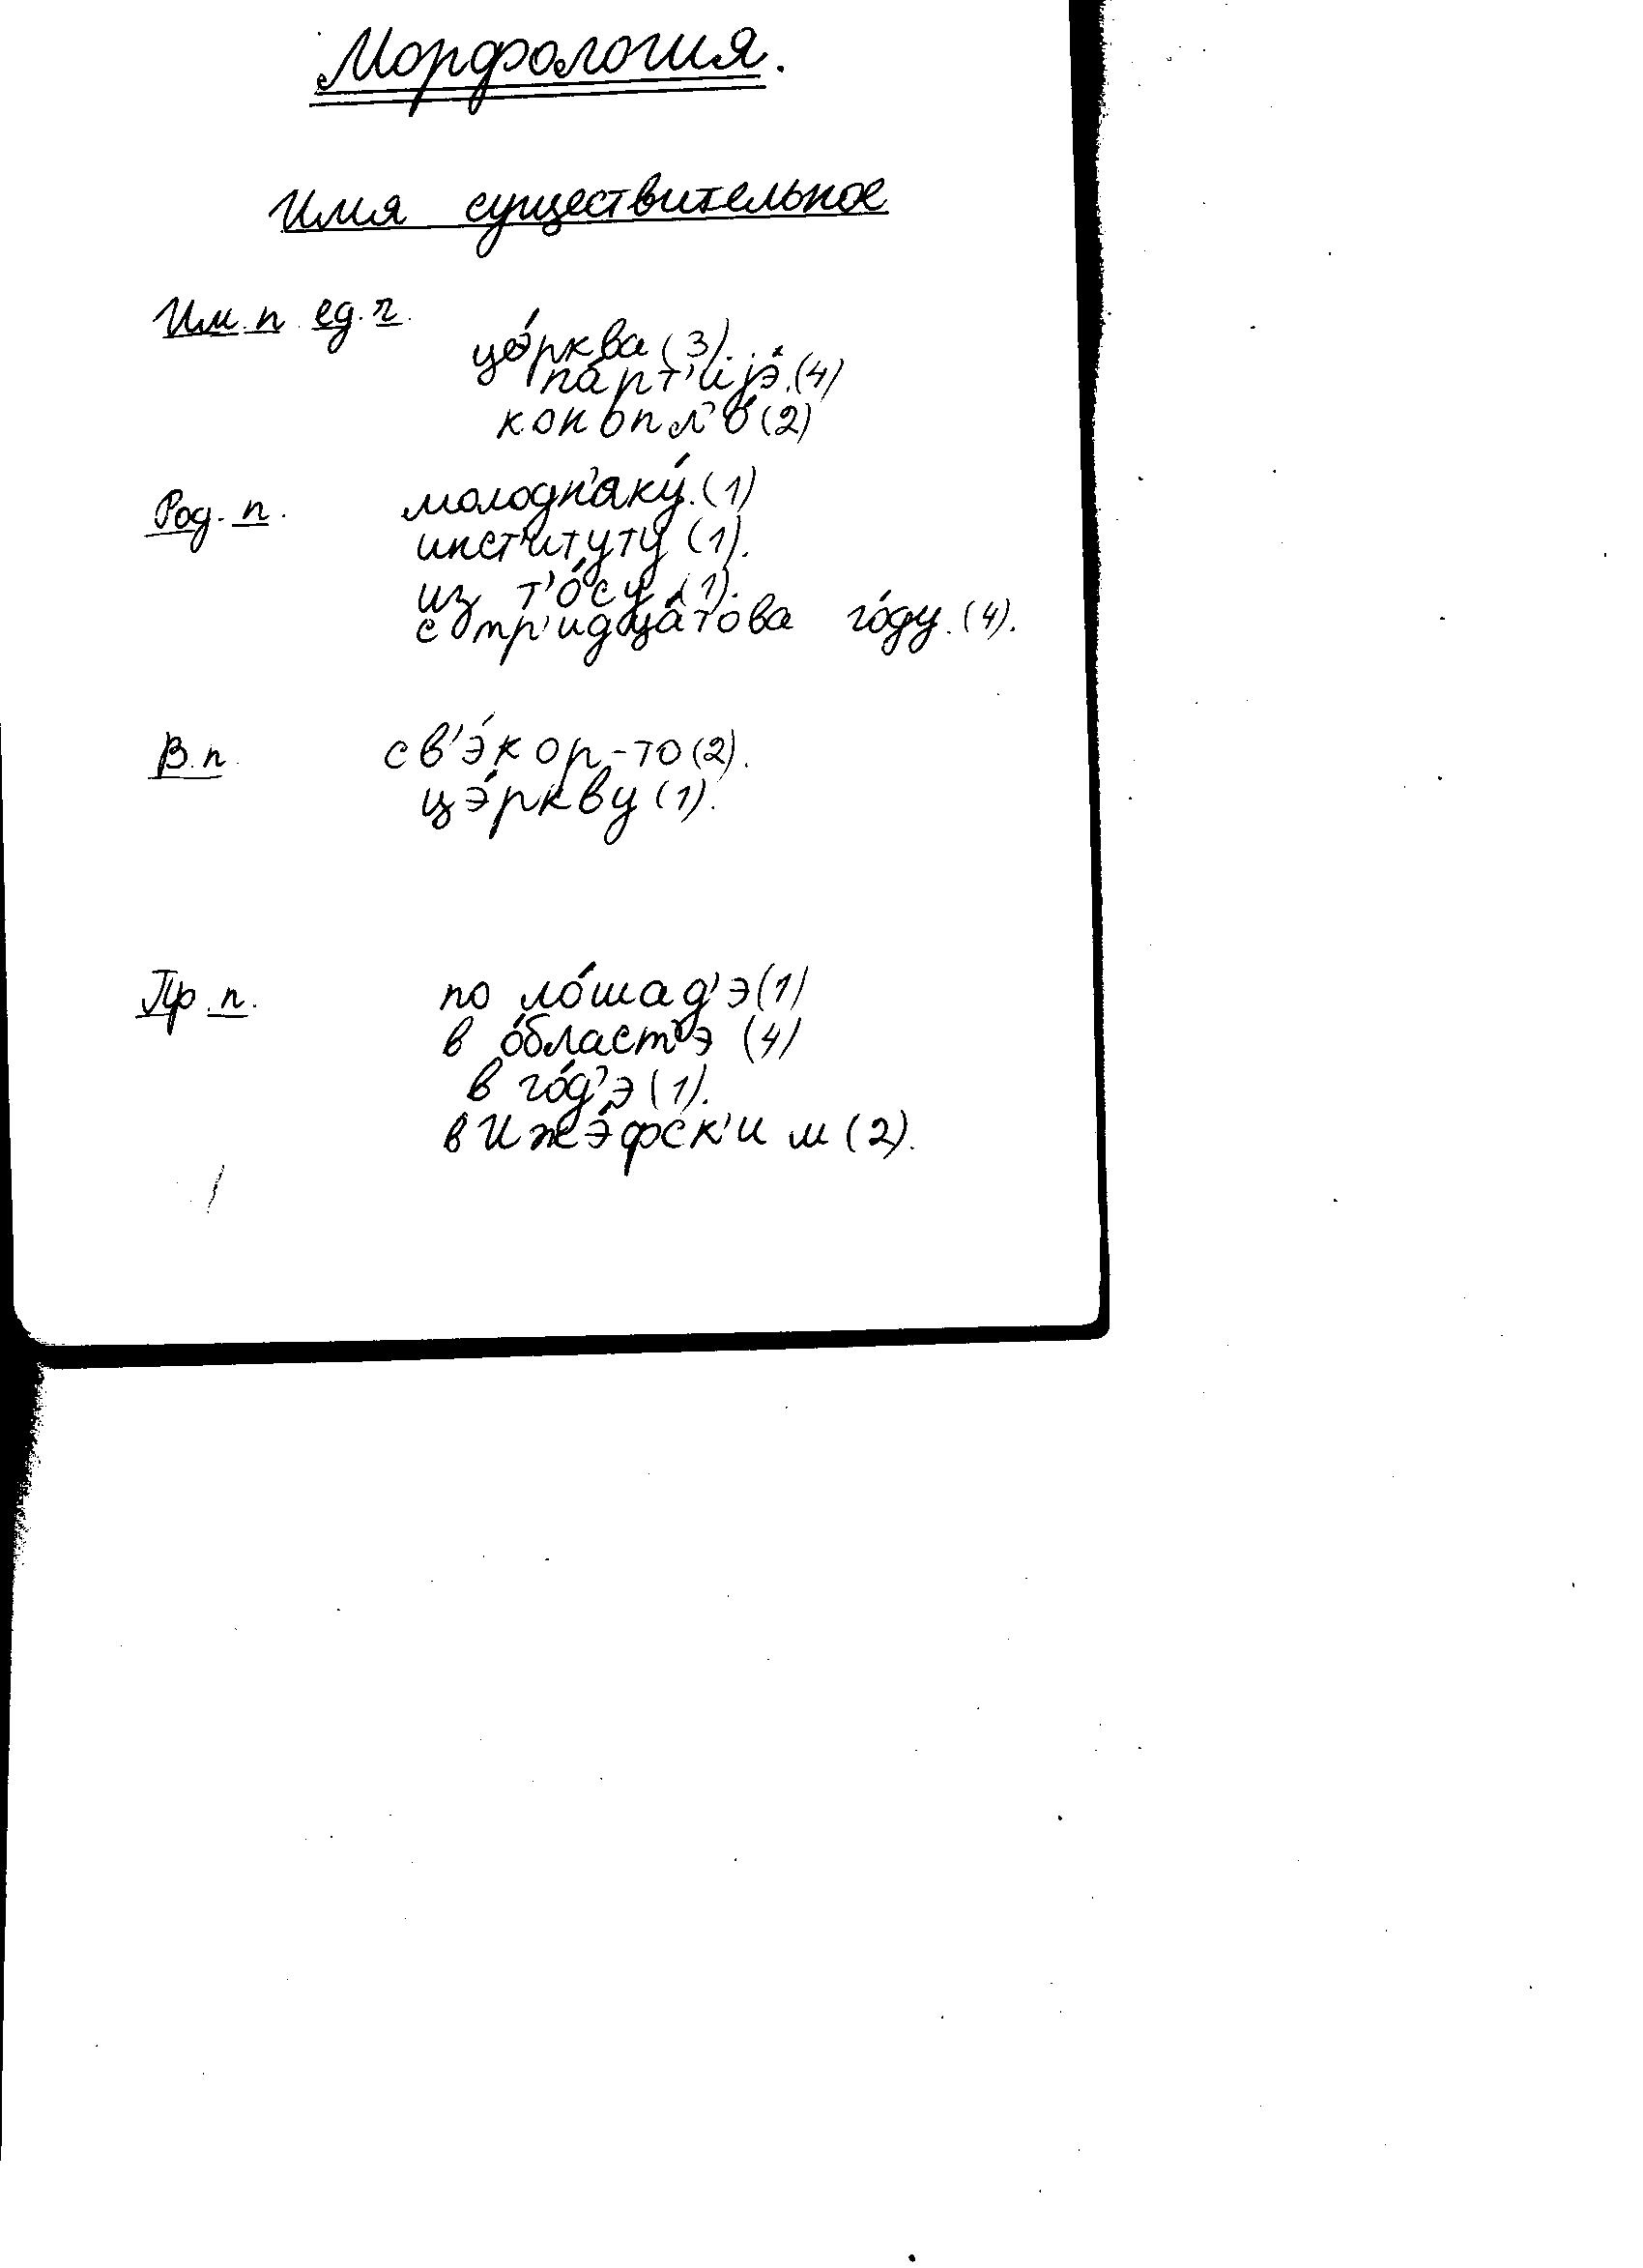 Морфология.
Имя существительное
Им. п. ед. ч.
цэ́рква (3).
па́рт'ијэ. (4)
конопл'о́ (2)
Род. п. молодн'аку́. (1)
инст'итуту (1).
из т'о́су (1).
с тр'идца́това го́ду. (4).
В. п. св'э́кор-то (2).
цэ́ркву (1).
Пр. п. по ло́шад'э (1)
в о́бласт'э (4)
в го́д'э (1).
в Ижэ́фск'им (2).